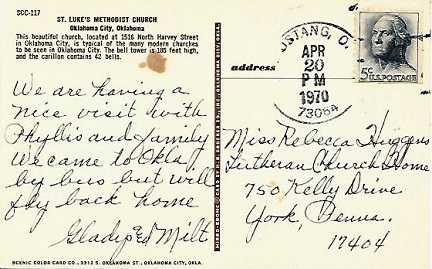 SCC-117
ST. LUKE'S METHODIST CHURCH
Oklahoma City, Oklahoma
This beautiful church, located at 1516 North Harvey Street
in Oklahoma City, is typical of the many modern churches
to be seen in Oklahoma City. The bell tower is 185 feet high,
and the carillon contains 42 bells.
We are having a
nice visit with
Phyllis and family
We came to Okla
by bus but will
fly back home
Gladys Ed Milt
SCENIC COLOR CARD CO. • 3312 S. OKLAHOMA ST., OKLAHOMA CITY, OKLA.
address
USTANG, O
APR
20
PM
1970
73064
5¢ U.S. POSTAGE
Miss Rebecca Huggens
Lutheran Church Home
750 Kelly Drive
York, Penna.
17404